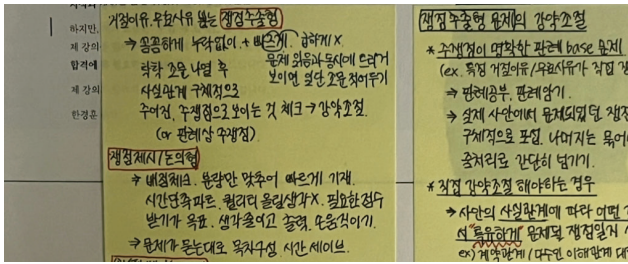 하지만,
제 강의
합격에
제 강의
한경훈
거절이유, 무효사유 찾는 쟁점추출형
→ 꼼꼼하게 누락없이 + 빠르게. 급하게X.
락락 조문 나열 후 문제 읽음과 동시에 뜨라거
사실관계 구체적으로 보이면 일단 조문 적어두기
주어진, 주쟁점으로 보이는 것 체크 → 강약조절.
(or 판례상 주쟁점).
쟁점제시/논의형
→ 배점체크. 분량만 맞추어 빠르게 기재.
시간단축파트. 퀄리티 올릴생각X. 필요한점수
받기가 목표. 생각줄이고 출력. 또움직이기.
→ 문제가 묻는대로 목차구성. 시간 세이브.
쟁점추출형 문제의 강약조절
* 주쟁점이 명확한 판례 base 문제
(ex. 특정 거절이유/무효사유가 직접
→ 판례공부, 판례암기.
→ 실제 사안에서 문제되었던
구체적으로 포섭. 나머지는
꾹처리로 간단히 넘기기.
* 직접 강약조절 해야하는 경우
→ 사안의 사실관계에 따라 어떤
서 "특유하게" 문제될 쟁점일지
ex) 계약관계 / 다수인 이해관계